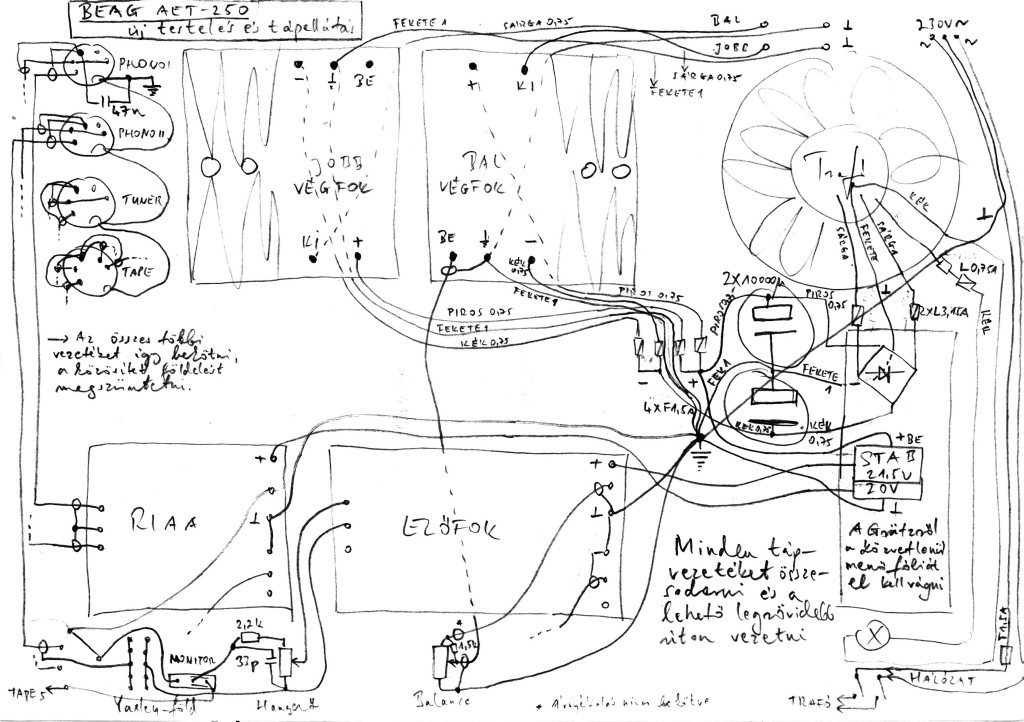 BEAG AET-250
új testelés és tápellátás
FEKETE 1
SÁRGA 0,75
BAL
JOBB
230V~
PHONO I
47n
PHONO II
TUNER
TAPE
BE
JOBB
VÉGFOK
KI
+
+
KI
BAL
VÉGFOK
BE
-
KÉK
0,75
SÁRGA 0,75
FEKETE 1
Trafó
KÉK
SÁRGA
FEKETE
SÁRGA
L0,75A
KÉK
2XL3,15A
FEKETE 1
PIROS 0,75
PIROS 0,75
FEKETE 1
KÉK 0,75
2X10000µ
PIROS
0,75
PIROS
FEK 1
FEKETE
1
-
+
4XF1,5A
KÉK 0,75
KÉK
0,75
→ Az összes többi
vezetéket így bekötni,
a közösített földelést
megszüntetni.
+BE
STAB
21,5V
20V
RIAA
+
ELŐFOK
+
A Graetzról
a közvetlenül
menő fóliát
el kell vágni
Minden táp-
vezetéket össze-
sodorni és a
lehető legrövidebb
úton vezetni
2,2k
33p
MONITOR
TAPE 5
Hangerő
1,5k
Balance
T1,5A
HÁLÓZAT
TRAFÓ